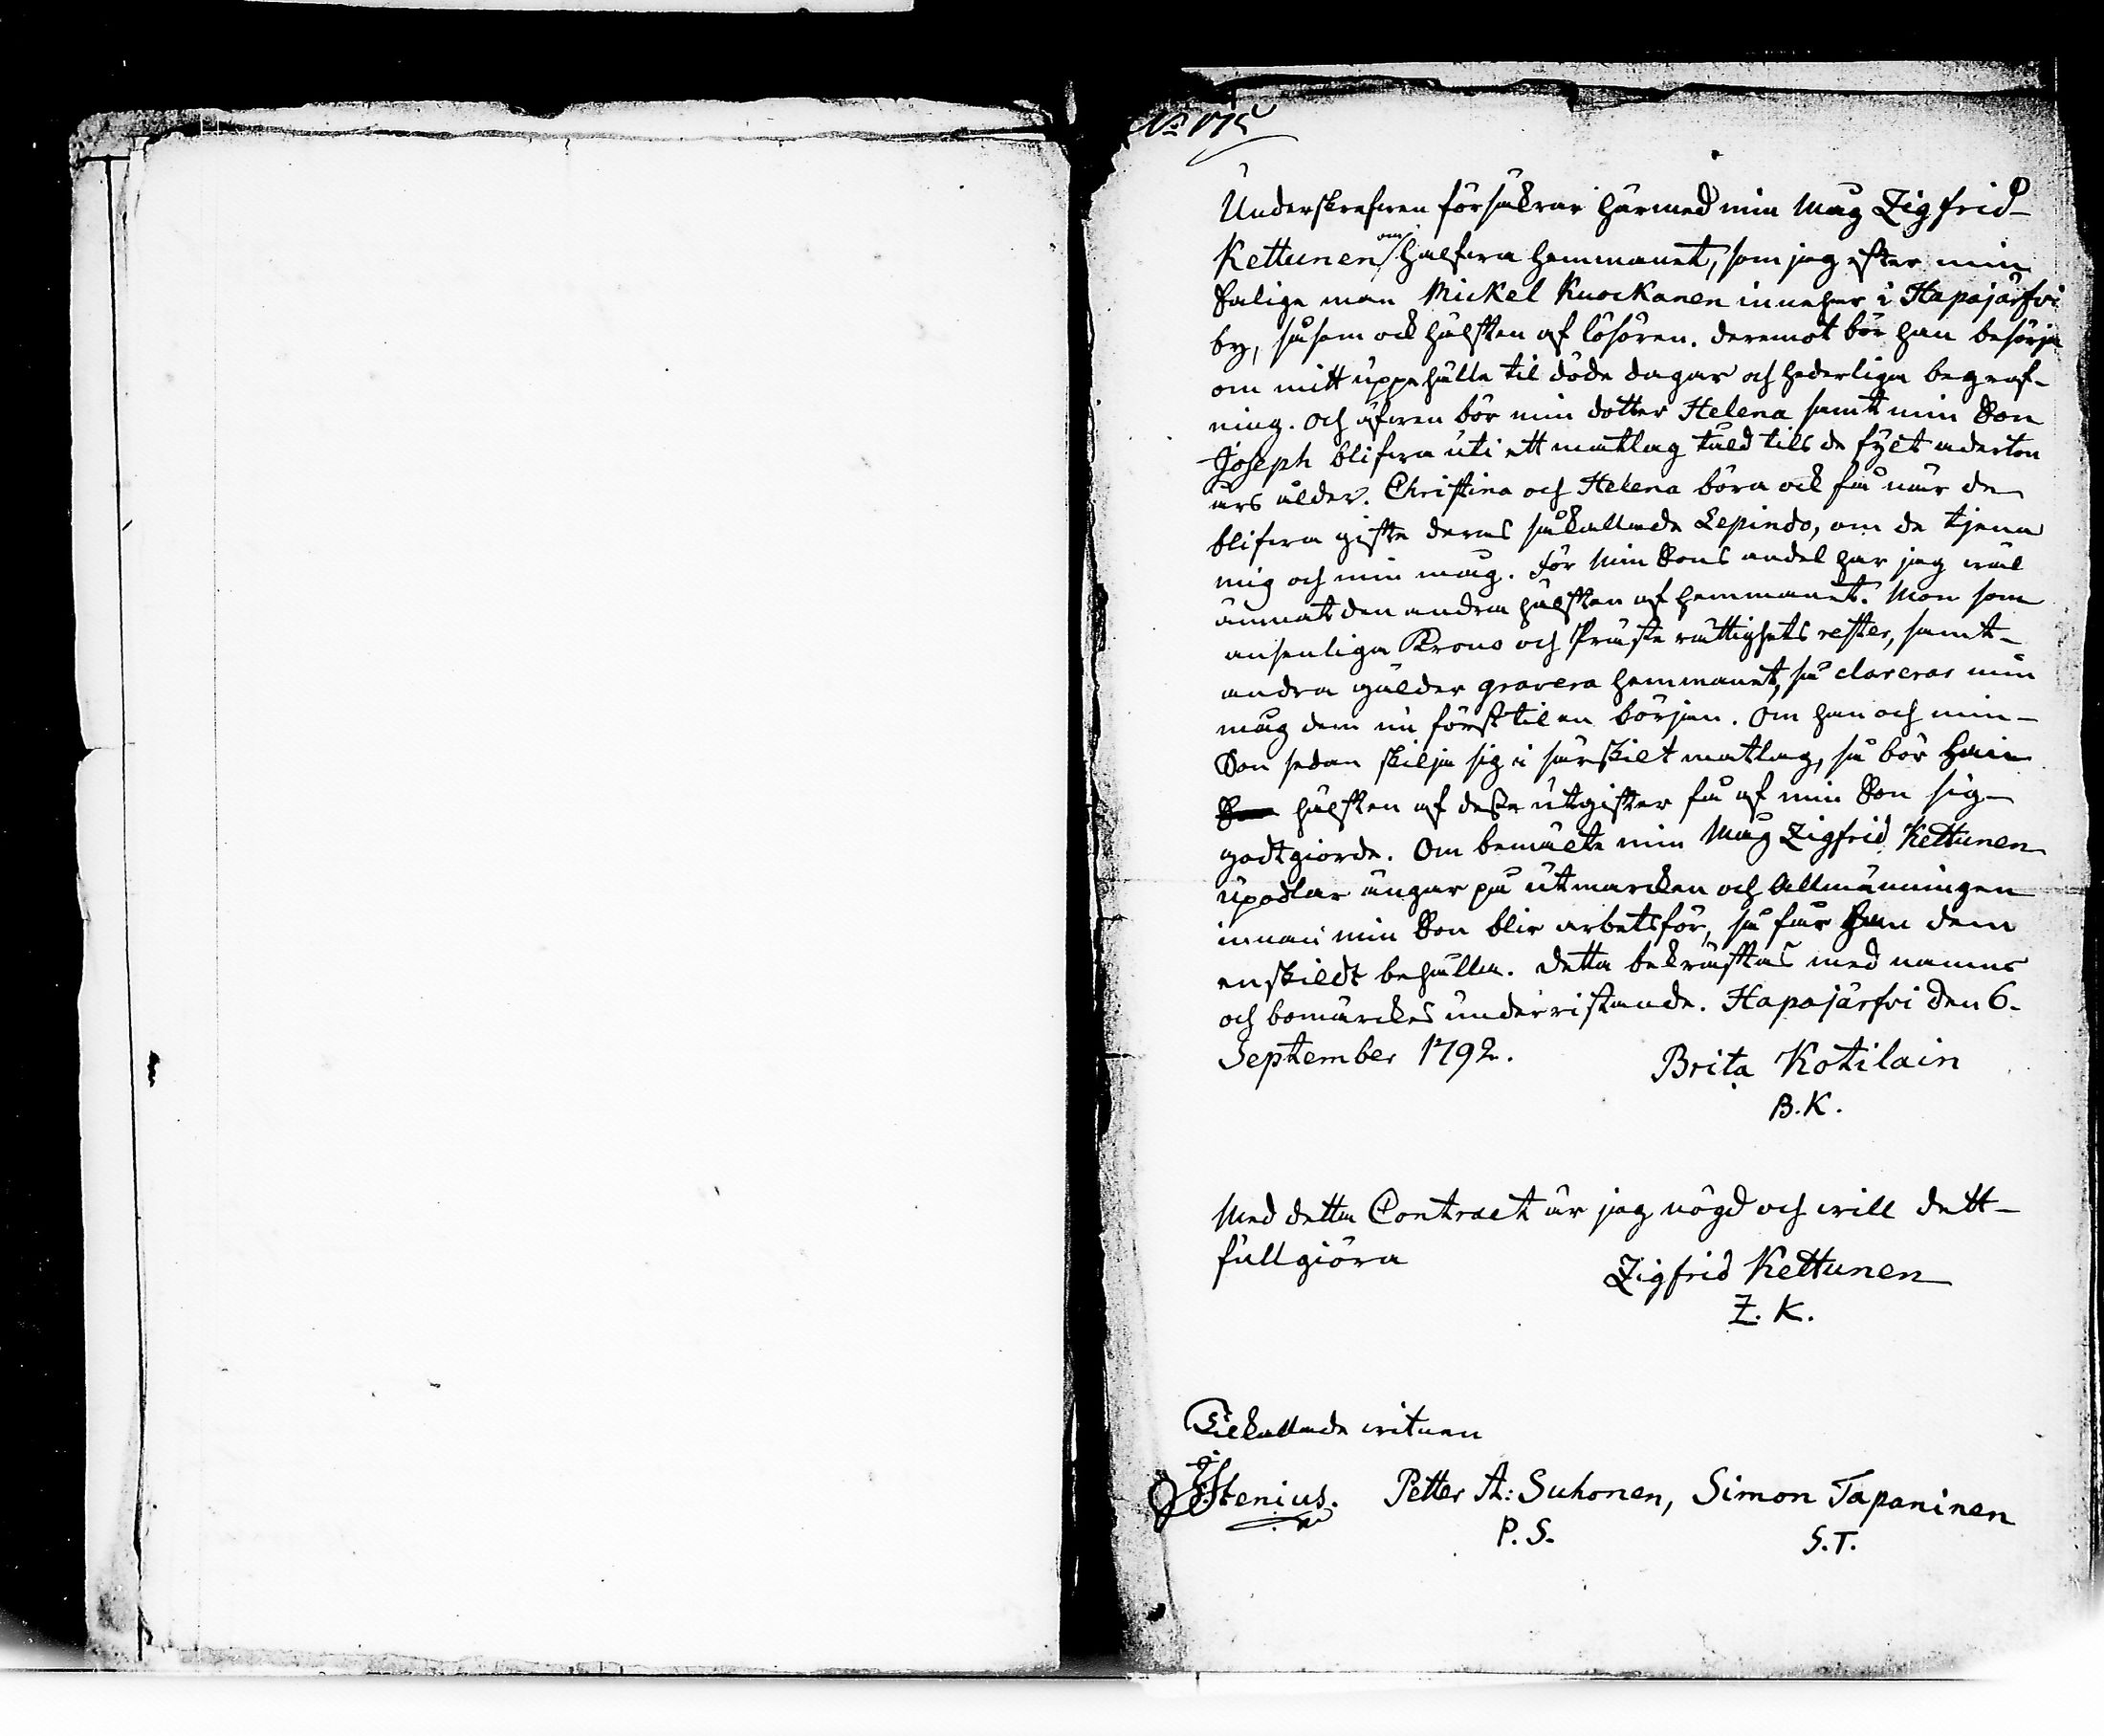 No 175
Underskrefwen försäkrar härmed min Måg Zigfrid
Kettunen om halfwa hemmanet, som jag efter min
Salige man Mickel Kuockanen innehar i Hapajärfvi
by, såsom ock hälften af lösören. deremot bör han besörja
om mitt uppehälle til döde dagar och hederliga begraf-
ning. Och äfwen bör min dotter Helena samt min Son
Joseph blifwa uti ett matlag tils de fylt aderton
års ålder. Christina och Helena böra ock få när de
blifwa gifte deras såkallade Lepindo, om de tjena
mig och min måg. För Min Sons andel har jag wäl
ämnat den andra hälften af hemmanet. Men som
ansenliga Krono och Präste rättighets rester, samt
andra gälder gravera hemmanet, så clarerar min
måg dem nu först til en början. Om han och min
Son sedan skilja sig i särskilt matlag, så bör han
hälften af desse utgifter få af min Son sig
godtgiorde. Om bemälte min Måg Zigfrid Kettunen
upodlar ängar på utmarcken och Allmänningen
innan min Son blir arbetsför, så får han dem
enskildt behålla. Detta bekräftas med namns
och bomärckes underristande. Hapajärfvi den 6
September 1792.
Brita Kotilain
B.K.
Med detta Contract är jag nögd och will dett
fullgiöra
Zigfrid Kettunen
Z. K.
Tilkallade witnen
Stenius. Petter A: Suhonen, Simon Tapaninen
P. S. S.T.